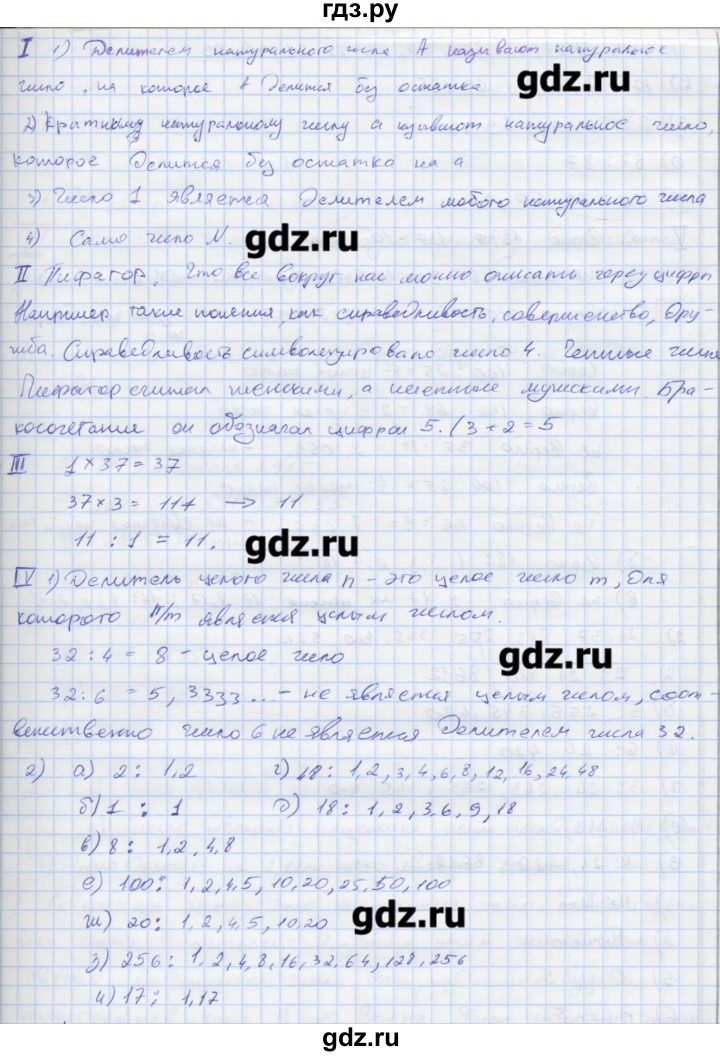 гдз.ру
I 1) Делителем натурального числа А называют натуральное
число, на которое А делится без остатка
gdz.ru
2) Кратным натуральному числу а называют натуральное число,
которое делится без остатка на а
3) Число 1 является делителем любого натурального числа
4) Само число N.
gdz.ru
II Пифагор. Что все вокруг нас можно описать через цифры
Например такие понятия, как справедливость, совершенство, дру-
жба. Справедливость символизировало число 4. Четные числа
Пифагор считал женскими, а нечетные мужскими. Бра-
косочетание он обозначал цифрой 5. (3+2=5
III 1×37=37
37×3=111 → 11
11 : 1 = 11.
gdz.ru
IV 1) Делитель целого числа n – это целое число m, для
которого n/m является целым числом.
32:4 = 8 – целое число
gdz.ru
32:6 = 5,3333... – не является целым числом, соот-
ветственно число 6 не является делителем числа 32.
2) а) 2: 1,2 г) 48: 1,2,3,4,6,8,12,16,24,48
б) 1 : 1 д) 18: 1,2,3,6,9,18
в) 8: 1,2,4,8
е) 100: 1,2,4,5,10,20,25,50,100
ж) 20: 1,2,4,5,10,20
gdz.ru
з) 256: 1,2,4,8,16,32,64,128,256
и) 17: 1,17
gdz.ru